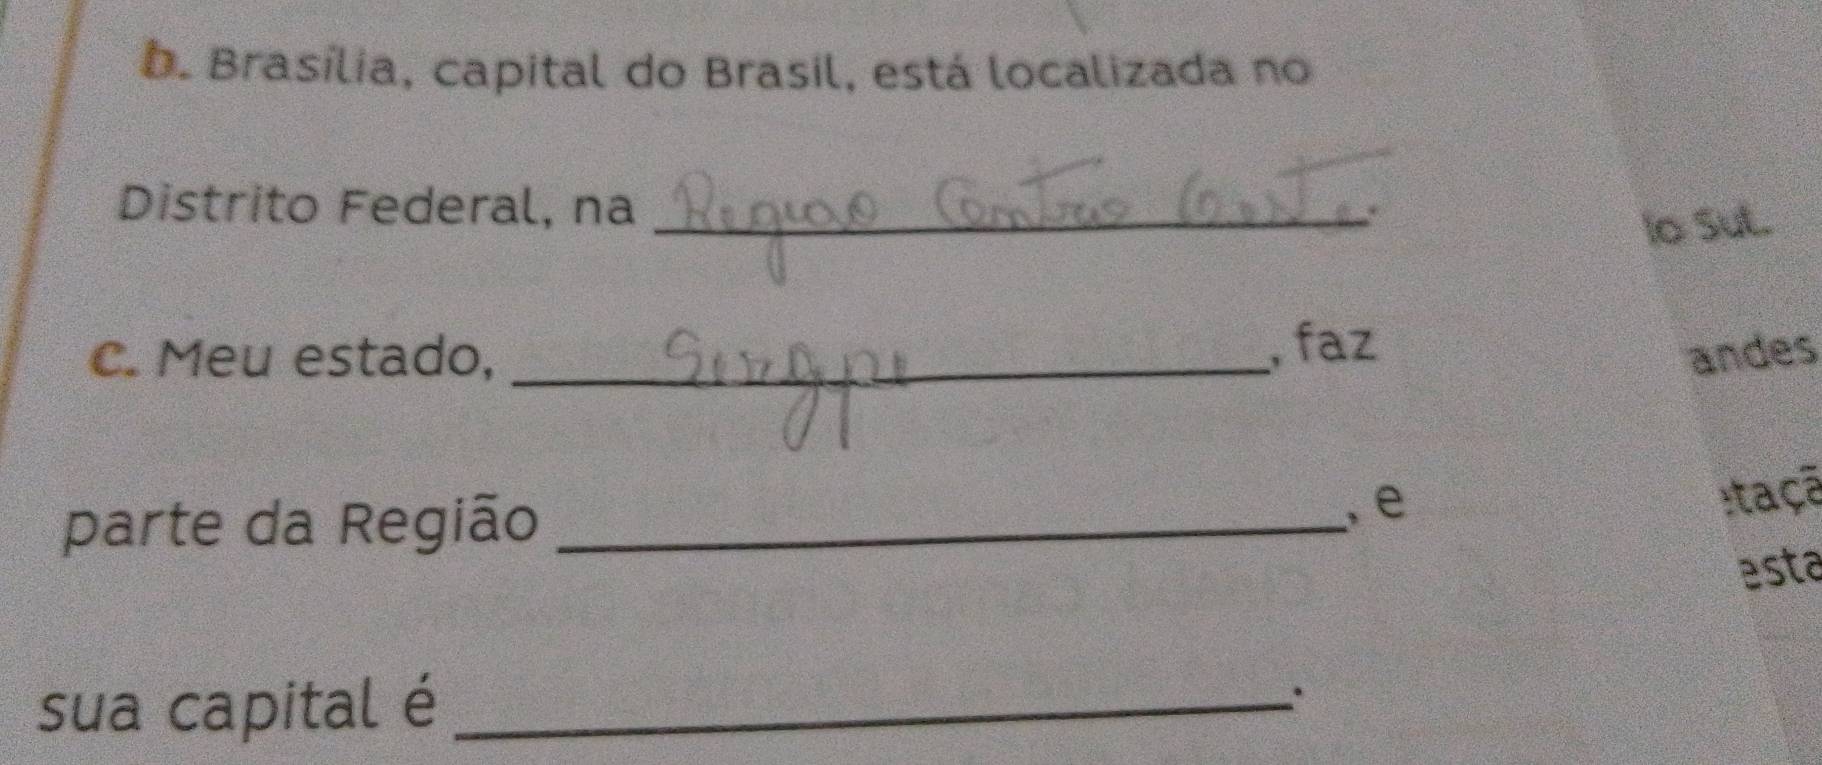 b. Brasília, capital do Brasil, está localizada no
Distrito Federal, na Região Contro Oeste.
c. Meu estado, Sergipe, faz
parte da Região , e
sua capital é .
lo Sul.
andes
etaçã
esta